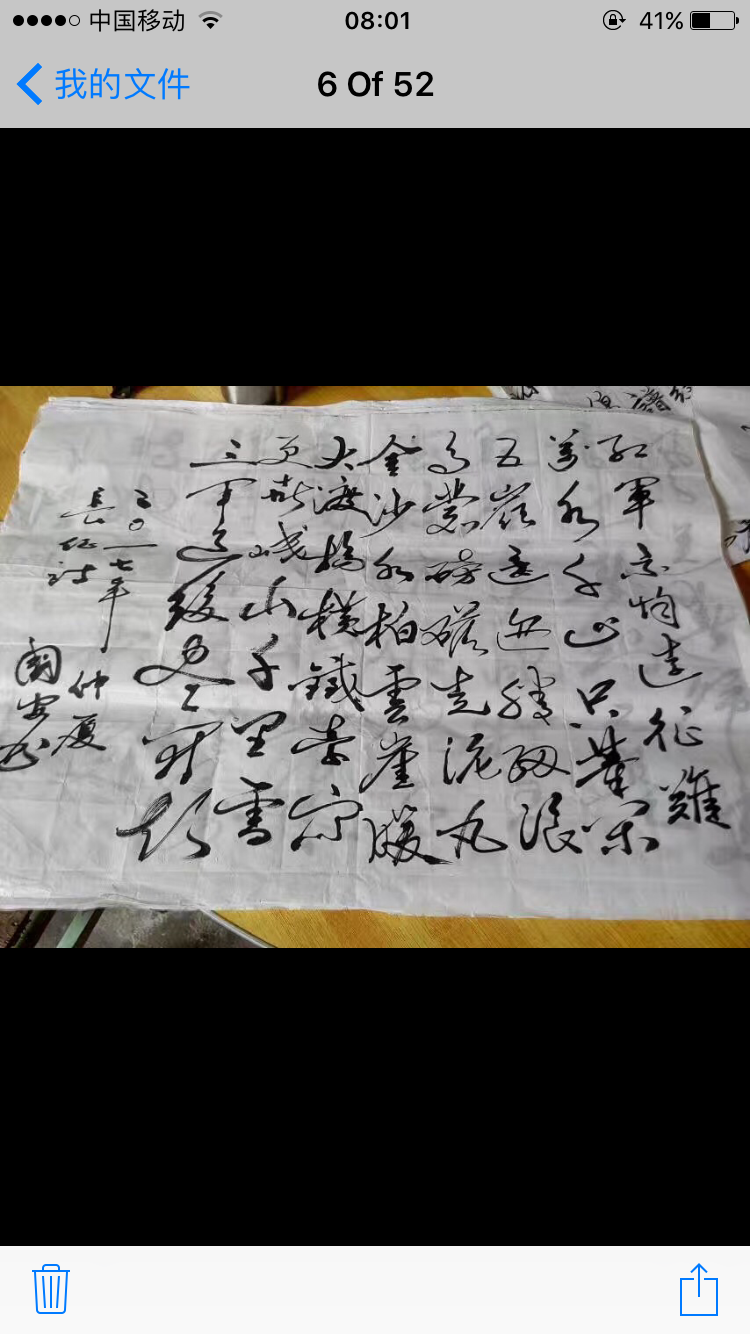 中国移动 08:01 41%
我的文件 6 Of 52
紅軍不怕遠征難
萬水千山只等閑
五嶺逶迤騰細浪
烏蒙磅礴走泥丸
金沙水拍雲崖暖
大渡橋橫鐵索寒
更喜岷山千里雪
三軍過後盡開顏
二〇一七年
仲夏
長征诗
國安书